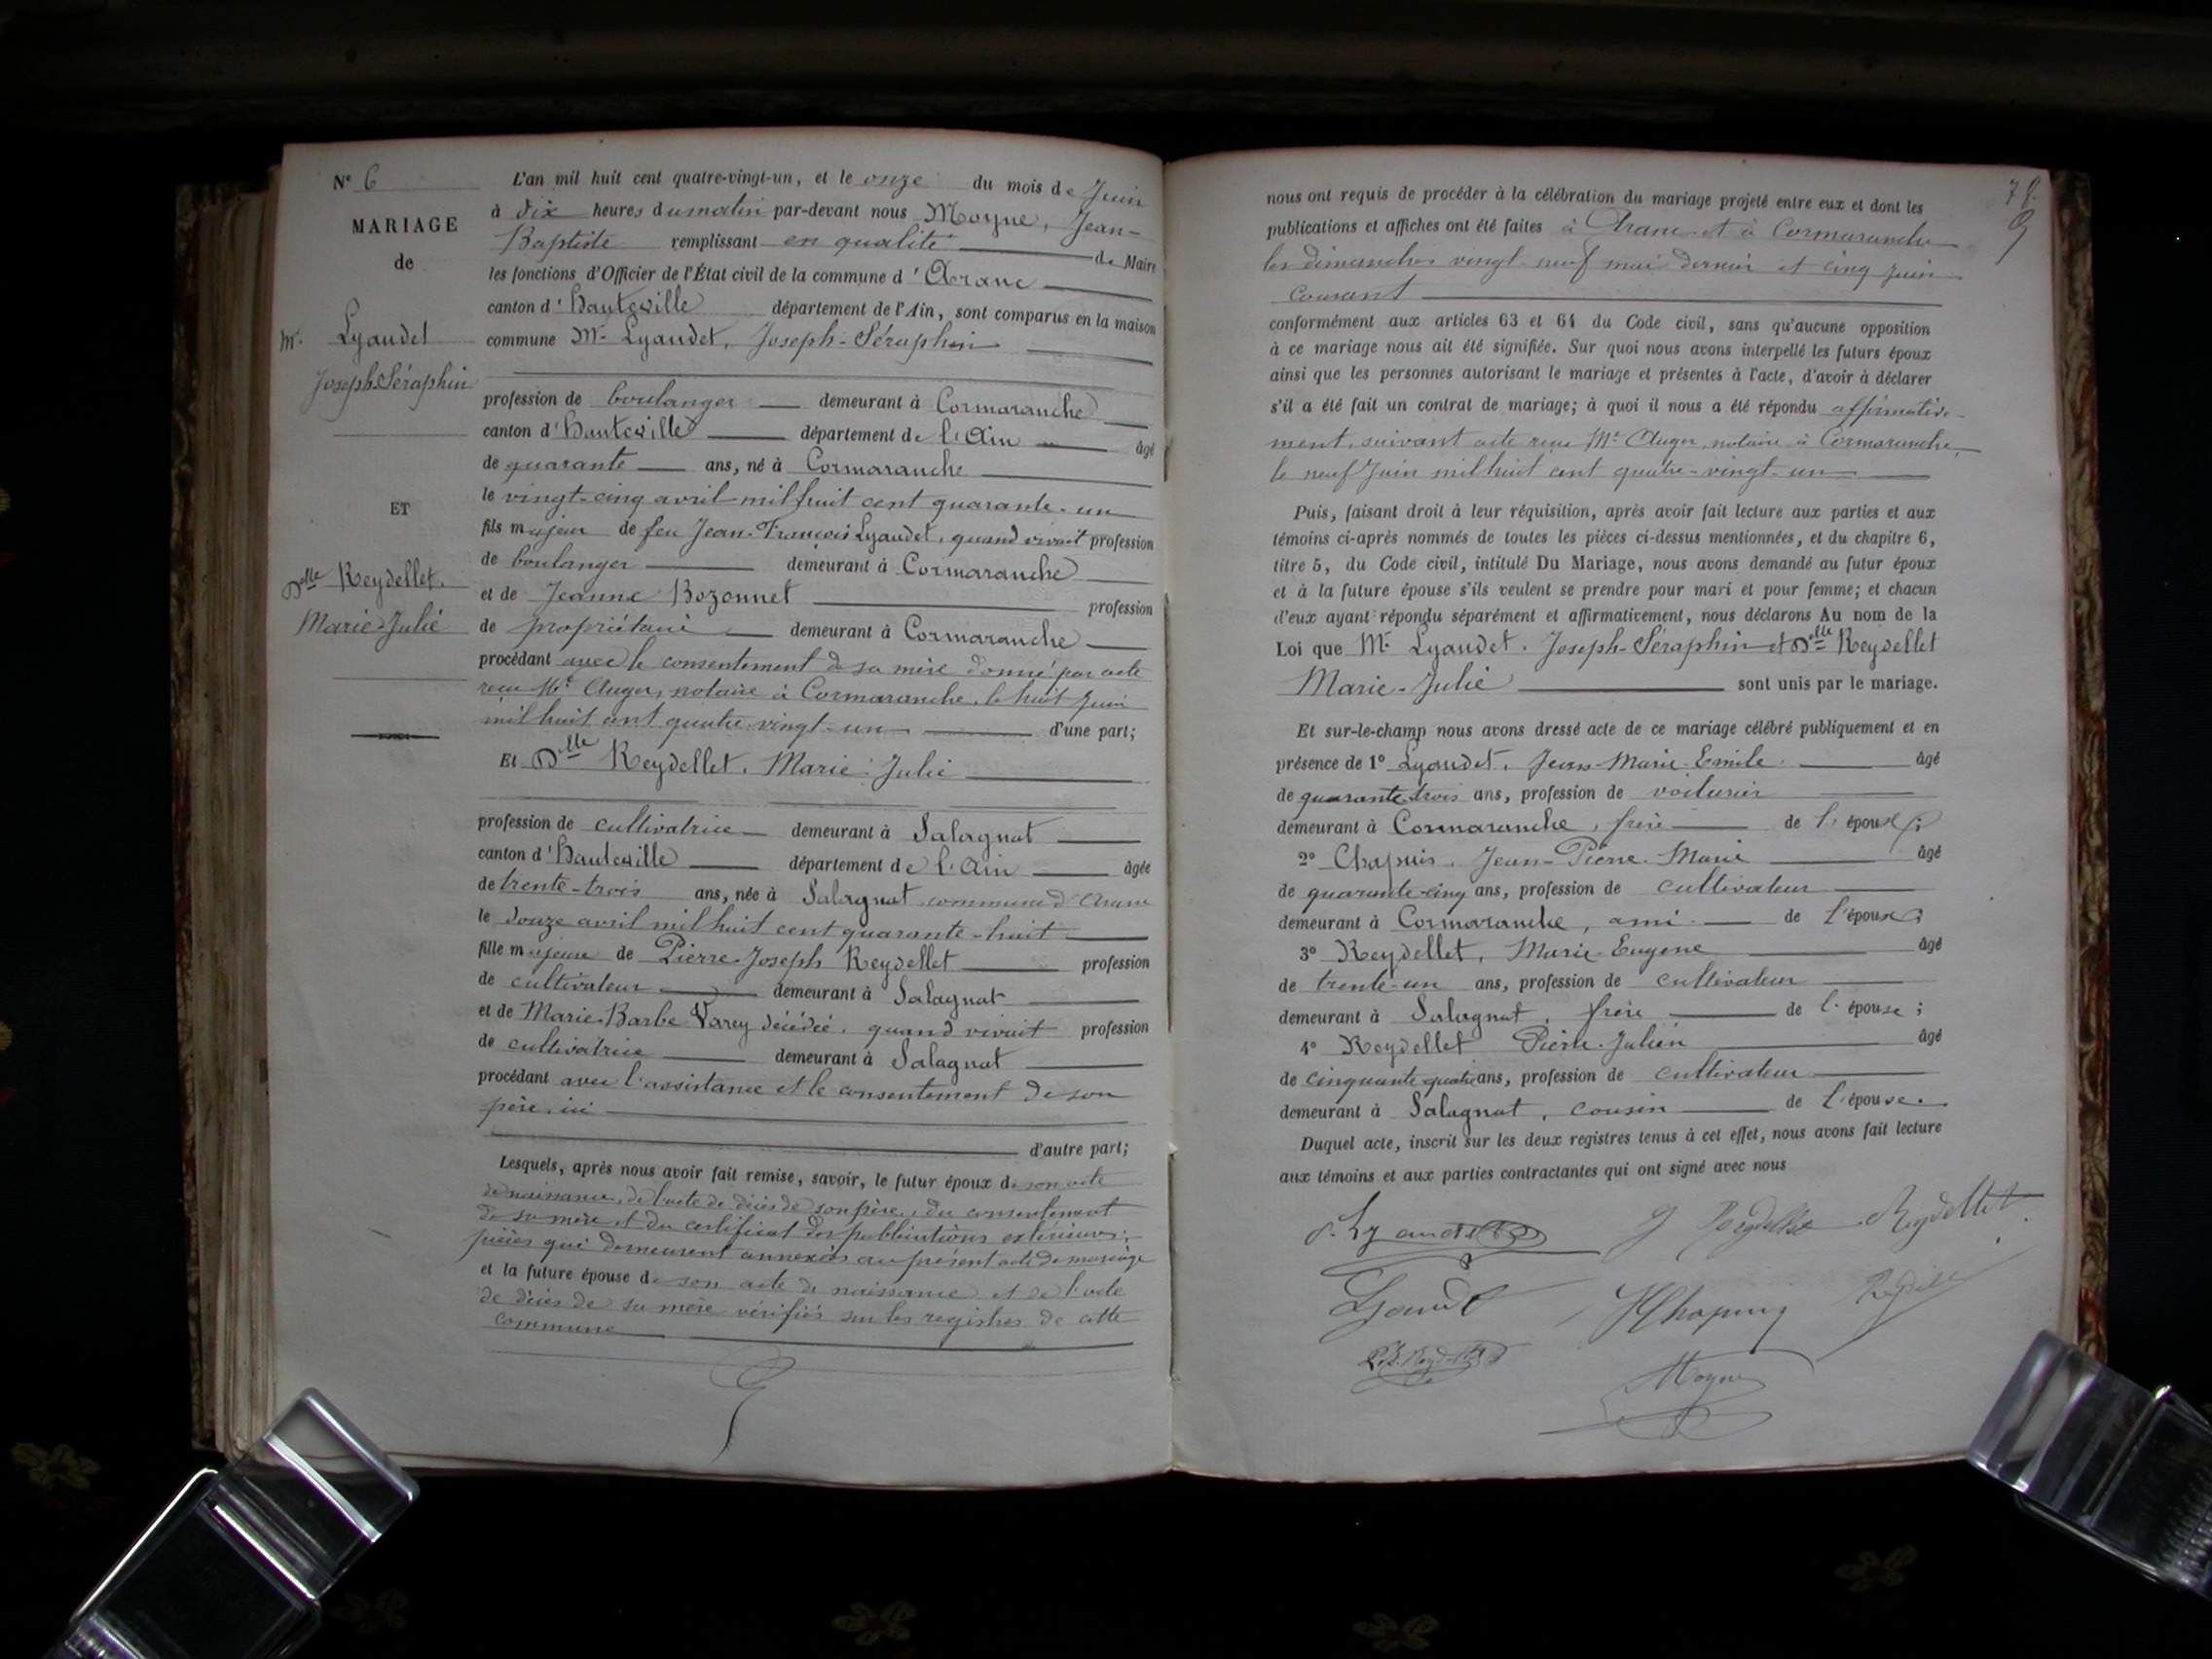 N° 6
MARIAGE
de
Mr. Lyaudet
Joseph-Séraphin
ET
Dlle Reydellet,
Marie-Julie
L'an mil huit cent quatre-vingt-un, et le onze du mois de Juin
à dix heures du matin par-devant nous Moyne, Jean-
Baptiste remplissant en qualité de Maire
les fonctions d'Officier de l'État civil de la commune d'Aranc
canton d'Hauteville département de l'Ain, sont comparus en la maison
commune Mr. Lyaudet, Joseph-Séraphin
profession de boulanger demeurant à Cormaranche
canton d'Hauteville département de l'Ain âgé
de quarante ans, né à Cormaranche
le vingt-cinq avril mil huit cent quarante-un
fils majeur de feu Jean-François Lyaudet, quand vivait profession
de boulanger demeurant à Cormaranche
et de Jeanne Bozonnet profession
de propriétaire demeurant à Cormaranche
procédant avec le consentement de sa mère donné par acte
reçu Me Auger, notaire à Cormaranche, le huit Juin
mil huit cent quatre-vingt-un d'une part;
Et Dlle Reydellet, Marie-Julie
profession de cultivatrice demeurant à Salagnat
canton d'Hauteville département de l'Ain âgée
de trente-trois ans, née à Salagnat commune d'Aranc
le douze avril mil huit cent quarante-huit
fille majeure de Pierre-Joseph Reydellet profession
de cultivateur demeurant à Salagnat
et de Marie-Barbe Varey décédée, quand vivait profession
de cultivatrice demeurant à Salagnat
procédant avec l'assistance et le consentement de son
père, ici
d'autre part;
Lesquels, après nous avoir fait remise, savoir, le futur époux de son acte
de naissance, de l'acte de décès de son père, du consentement
de sa mère et du certificat des publications extérieures;
pièces qui demeurent annexées au présent acte de mariage
et la future épouse de son acte de naissance et de l'acte
de décès de sa mère vérifiés sur les registres de cette
commune
78.
nous ont requis de procéder à la célébration du mariage projeté entre eux et dont les
publications et affiches ont été faites à Aranc et à Cormaranche
les dimanches vingt-neuf mai dernier et cinq juin
courant
conformément aux articles 63 et 64 du Code civil, sans qu'aucune opposition
à ce mariage nous ait été signifiée. Sur quoi nous avons interpellé les futurs époux
ainsi que les personnes autorisant le mariage et présentes à l'acte, d'avoir à déclarer
s'il a été fait un contrat de mariage; à quoi il nous a été répondu affirmative-
ment, suivant acte reçu Me Auger, notaire à Cormaranche,
le neuf Juin mil huit cent quatre-vingt-un
Puis, faisant droit à leur réquisition, après avoir fait lecture aux parties et aux
témoins ci-après nommés de toutes les pièces ci-dessus mentionnées, et du chapitre 6,
titre 5, du Code civil, intitulé Du Mariage, nous avons demandé au futur époux
et à la future épouse s'ils veulent se prendre pour mari et pour femme; et chacun
d'eux ayant répondu séparément et affirmativement, nous déclarons Au nom de la
Loi que Mr. Lyaudet, Joseph-Séraphin et Dlle Reydellet
Marie-Julie sont unis par le mariage.
Et sur-le-champ nous avons dressé acte de ce mariage célébré publiquement et en
présence de 1° Lyaudet, Jean-Marie-Emile âgé
de quarante-trois ans, profession de voiturier
demeurant à Cormaranche, frère de l'époux;
2° Chapuis, Jean-Pierre-Marie âgé
de quarante-cinq ans, profession de cultivateur
demeurant à Cormaranche, ami de l'époux;
3° Reydellet, Marie-Eugène âgé
de trente-un ans, profession de cultivateur
demeurant à Salagnat, frère de l'épouse;
4° Reydellet Pierre-Julien âgé
de cinquante-quatre ans, profession de cultivateur
demeurant à Salagnat, cousin de l'épouse.
Duquel acte, inscrit sur les deux registres tenus à cet effet, nous avons fait lecture
aux témoins et aux parties contractantes qui ont signé avec nous
S. Lyaudet J Reydellet Reydellet
Lyaudet Chapuis
Moyne